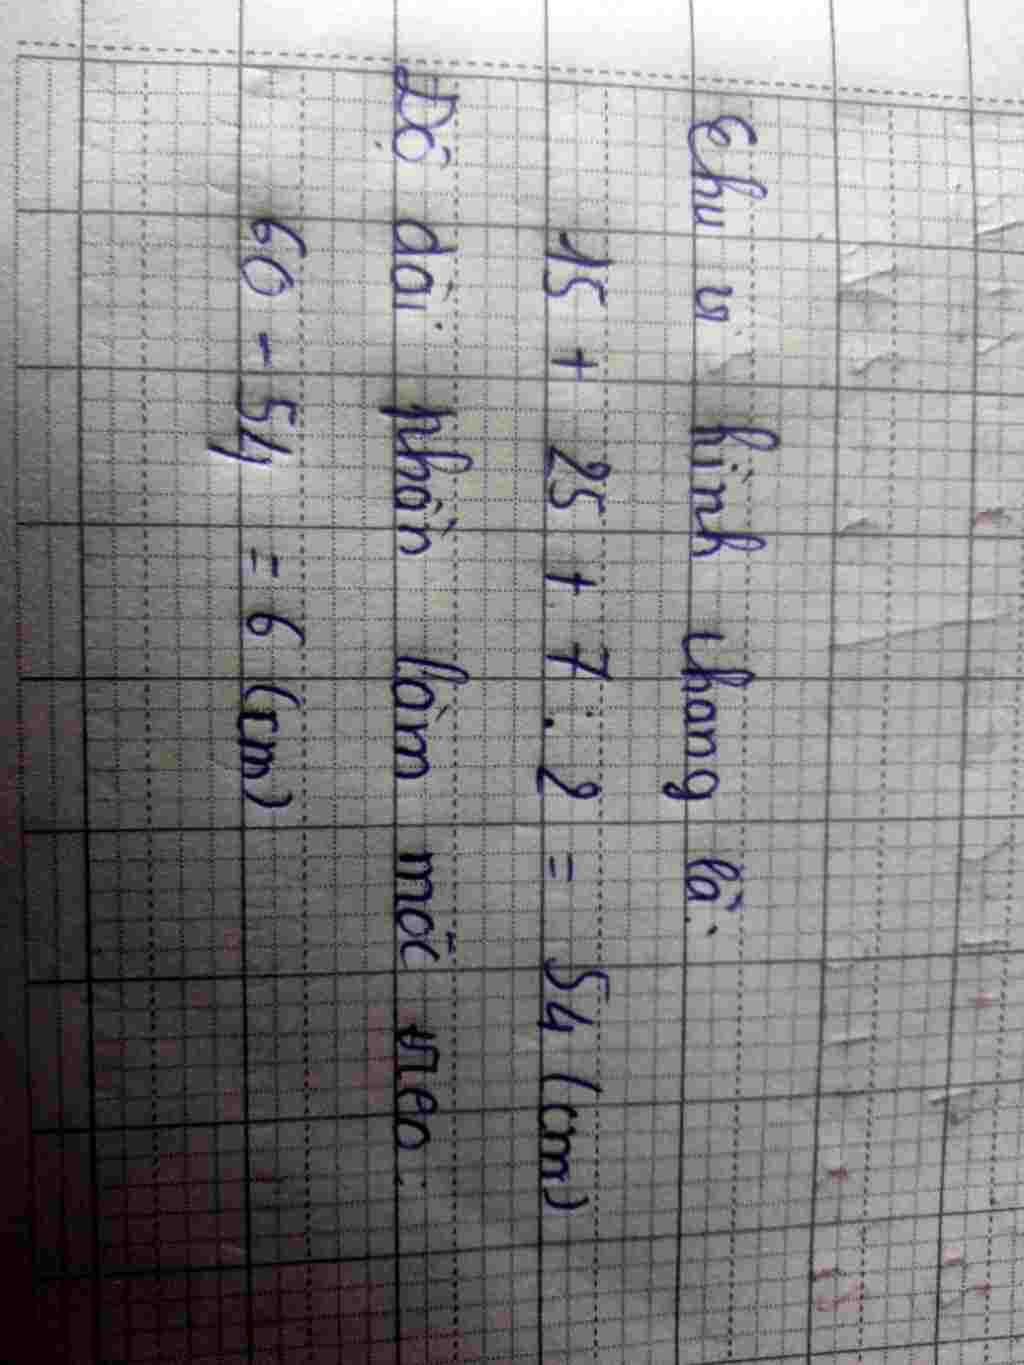 Chu vi hình thang là:
15 + 25 + 7 . 2 = 54 (cm)
Độ dài phần làm móc treo:
60 - 54 = 6 (cm)